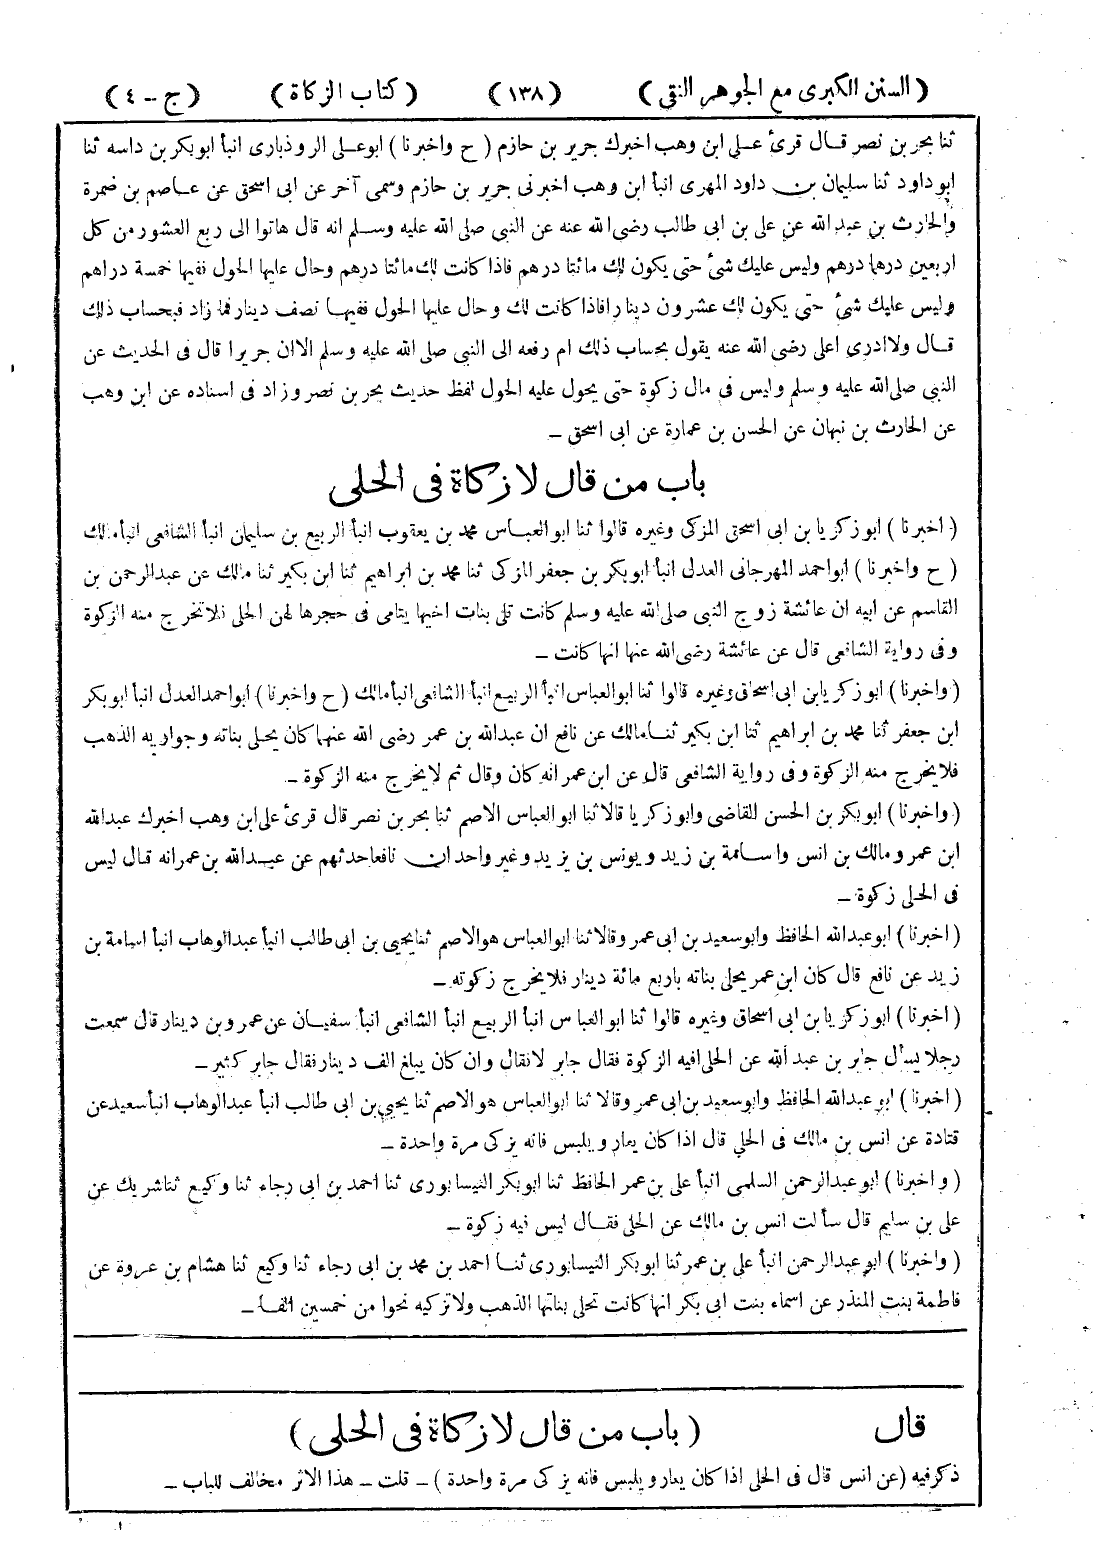 (السنن الكبرى مع الجوهر النقى) (١٣٨) (كتاب الزكاة) (ج - ٤)
ثنا بحر بن نصر قال قرئ على ابن وهب اخبرك جرير بن حازم (ح واخبرنا) ابو على الروذبارى انبأ ابو بكر بن داسه ثنا
ابو داود ثنا سليمان بن داود المهرى انبأ ابن وهب اخبرنى جرير بن حازم وسمى آخر عن ابى اسحق عن عاصم بن ضمرة
والحارث بن عبد الله عن على بن ابى طالب رضى الله عنه عن النبى صلى الله عليه وسلم انه قال هاتوا الى ربع العشور من كل
اربعين درهما درهم وليس عليك شئ حتى يكون لك مائتا درهم فاذا كانت لك مائتا درهم وحال عليها الحول ففيها خمسة دراهم
وليس عليك شئ حتى يكون لك عشرون دينارا فاذا كانت لك وحال عليها الحول ففيها نصف دينار فما زاد فبحساب ذلك
قال ولا ادرى اعلى رضى الله عنه يقول بحساب ذلك ام رفعه الى النبى صلى الله عليه وسلم الا ان جريرا قال فى الحديث عن
النبى صلى الله عليه وسلم وليس فى مال زكوة حتى يحول عليه الحول لفظ حديث بحر بن نصر وزاد فى اسناده عن ابن وهب
عن الحارث بن نبهان عن الحسن بن عمارة عن ابى اسحق -
باب من قال لا زكاة فى الحلى
(اخبرنا) ابو زكريا بن ابى اسحق المزكى وغيره قالوا ثنا ابو العباس محمد بن يعقوب انبأ الربيع بن سليمان انبأ الشافعى انبأ مالك
(ح واخبرنا) ابو احمد المهرجانى العدل انبأ ابو بكر بن جعفر المزكى ثنا محمد بن ابراهيم ثنا ابن بكير ثنا مالك عن عبد الرحمن بن
القاسم عن ابيه ان عائشة زوج النبى صلى الله عليه وسلم كانت تلى بنات اخيها يتامى فى حجرها لهن الحلى فلا تخرج منه الزكوة
وفى رواية الشافعى قال عن عائشة رضى الله عنها انها كانت -
(واخبرنا) ابو زكريا بن ابى اسحاق وغيره قالوا ثنا ابو العباس انبأ الربيع انبأ الشافعى انبأ مالك (ح واخبرنا) ابو احمد العدل انبأ ابو بكر
ابن جعفر ثنا محمد بن ابراهيم ثنا ابن بكير ثنا مالك عن نافع ان عبد الله بن عمر رضى الله عنهما كان يحلى بناته وجواريه الذهب
فلا يخرج منه الزكوة وفى رواية الشافعى قال عن ابن عمر انه كان وقال ثم لا يخرج منه الزكوة -
(واخبرنا) ابو بكر بن الحسن القاضى وابو زكريا قالا ثنا ابو العباس الاصم ثنا بحر بن نصر قال قرئ على ابن وهب اخبرك عبد الله
ابن عمر ومالك بن انس واسامة بن زيد ويونس بن يزيد وغير واحد ان نافعا حدثهم عن عبد الله بن عمر انه قال ليس
فى الحلى زكوة -
(اخبرنا) ابو عبد الله الحافظ وابو سعيد بن ابى عمرو قالا ثنا ابو العباس هو الاصم ثنا يحيى بن ابى طالب انبأ عبد الوهاب انبأ اسامة بن
زيد عن نافع قال كان ابن عمر يحلى بناته باربع مائة دينار فلا يخرج زكوته -
(اخبرنا) ابو زكريا بن ابى اسحاق وغيره قالوا ثنا ابو العباس انبأ الربيع انبأ الشافعى انبأ سفيان عن عمرو بن دينار قال سمعت
رجلا يسأل جابر بن عبد الله عن الحلى افيه الزكوة فقال جابر لا فقال وان كان يبلغ الف دينار فقال جابر كثير -
(اخبرنا) ابو عبد الله الحافظ وابو سعيد بن ابى عمرو قالا ثنا ابو العباس هو الاصم ثنا يحيى بن ابى طالب انبأ عبد الوهاب انبأ سعيد عن
قتادة عن انس بن مالك فى الحلى قال اذا كان يعار ويلبس فانه يزكى مرة واحدة -
(واخبرنا) ابو عبد الرحمن السلمى انبأ على بن عمر الحافظ ثنا ابو بكر النيسابورى ثنا احمد بن ابى رجاء ثنا وكيع ثنا شريك عن
على بن سليم قال سألت انس بن مالك عن الحلى فقال ليس فيه زكوة -
(واخبرنا) ابو عبد الرحمن انبأ على بن عمر ثنا ابو بكر النيسابورى ثنا احمد بن محمد بن ابى رجاء ثنا وكيع ثنا هشام بن عروة عن
فاطمة بنت المنذر عن اسماء بنت ابى بكر انها كانت تحلى بناتها الذهب ولا تزكيه نحوا من خمسين الفا -
قال (باب من قال لا زكاة فى الحلى)
ذكر فيه (عن انس قال فى الحلى اذا كان يعار ويلبس فانه يزكى مرة واحدة) - قلت - هذا الاثر مخالف للباب -